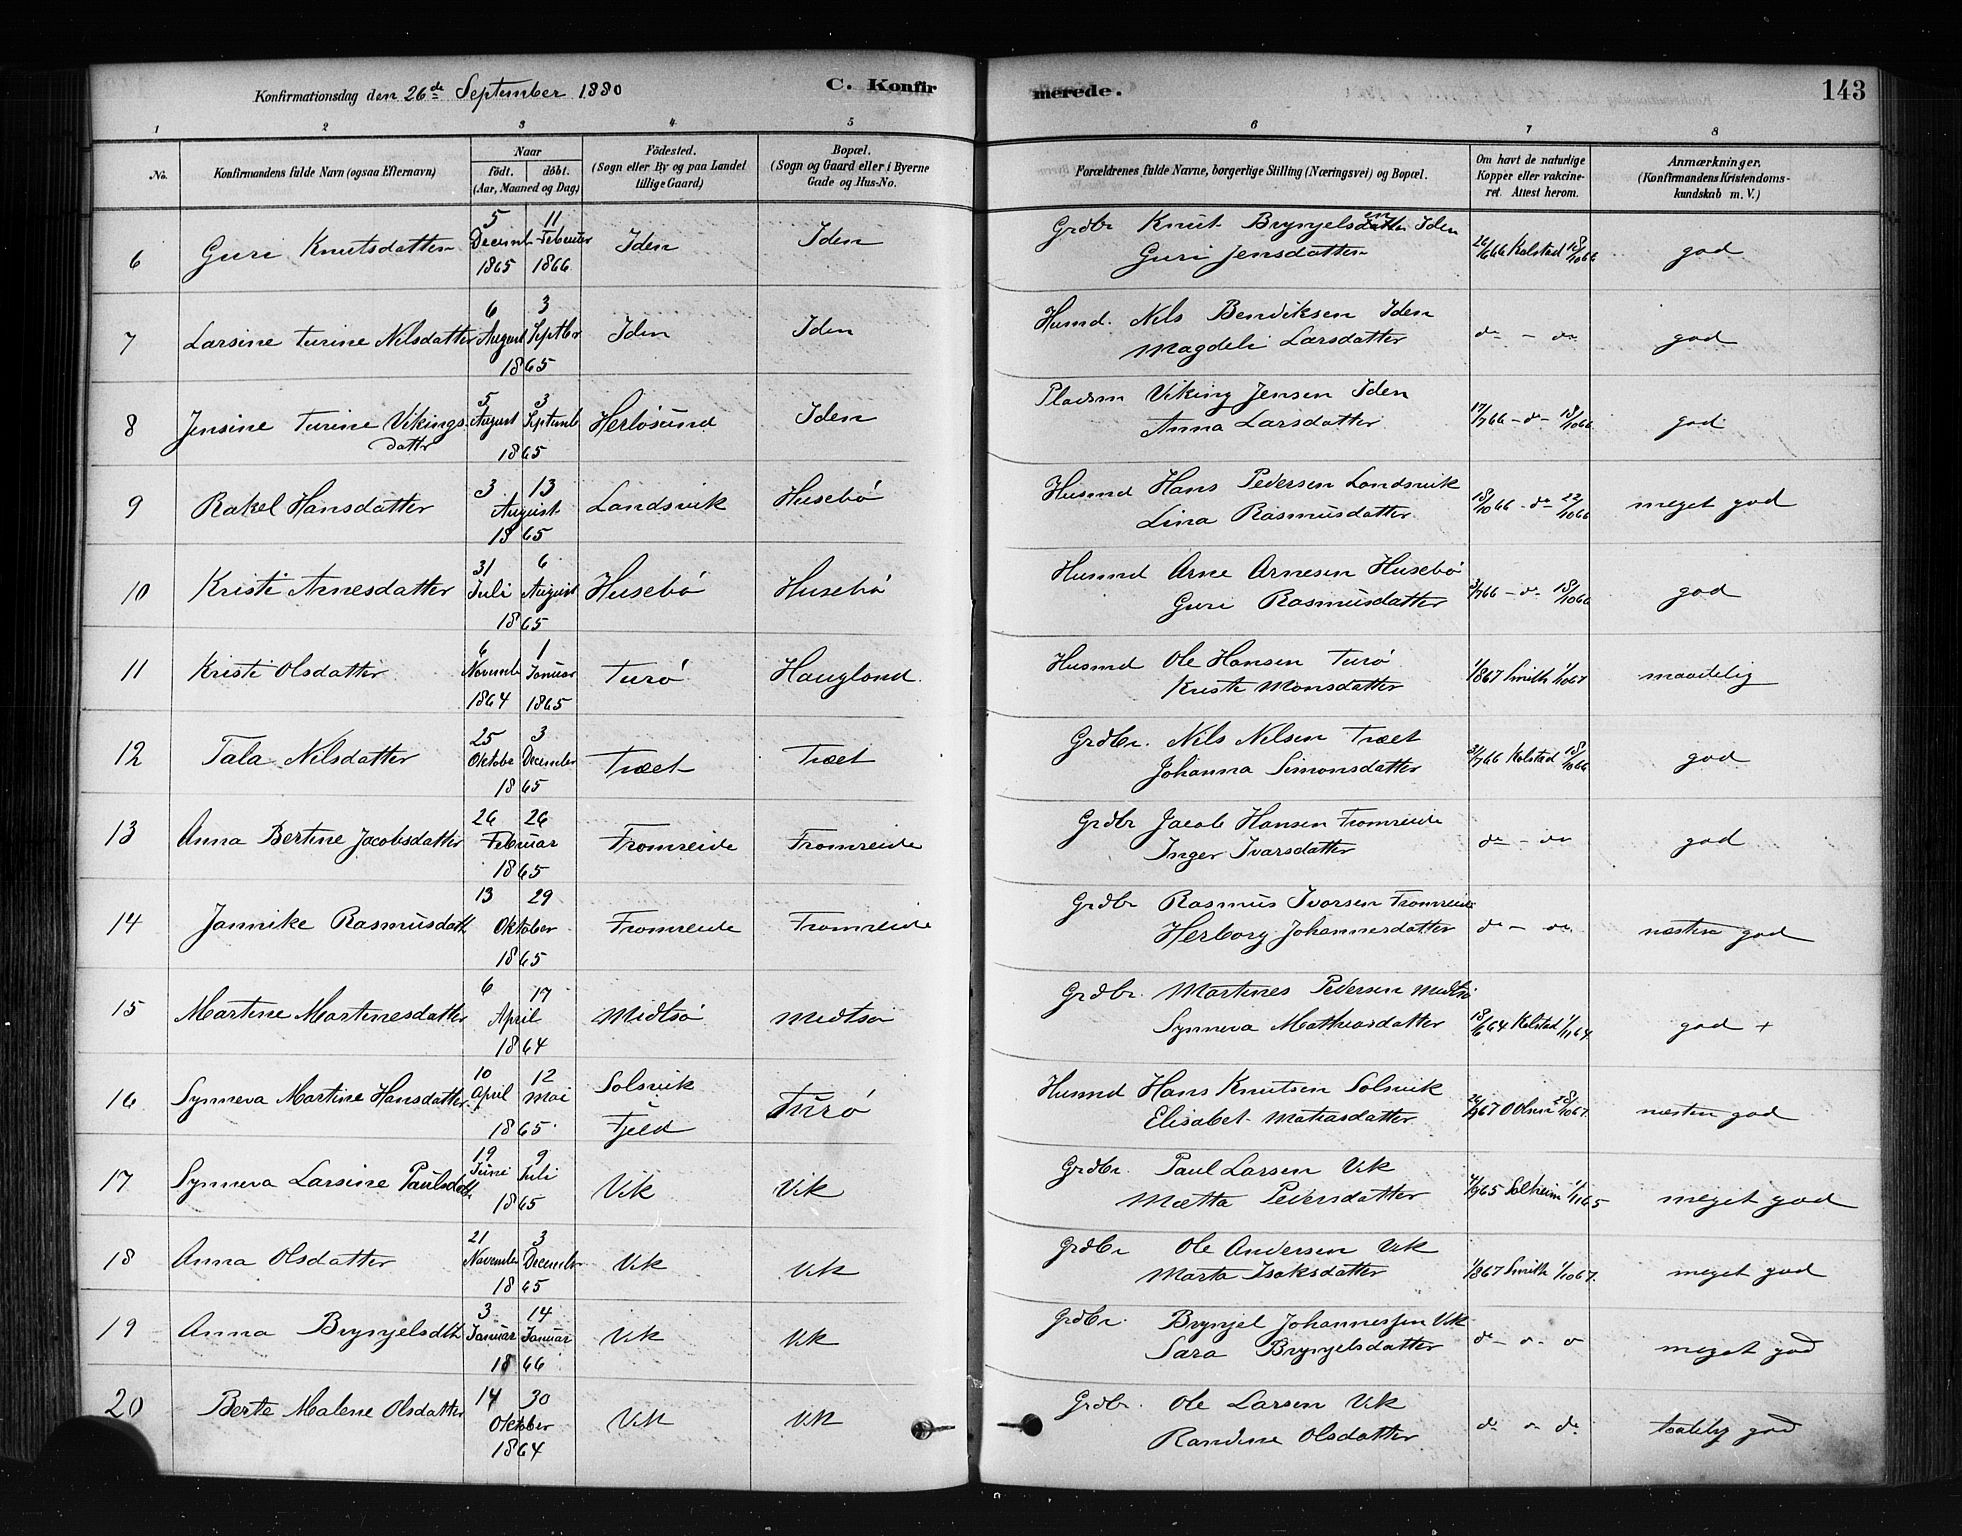 Konfirmationsdag den 26de September 1880 C. Konfirmerede. 143
1 2 3 4 5 6 7 8
No. Konfirmandens fulde Navn (ogsaa Efternavn) Naar födt. döbt. (Aar, Maaned og Dag) Födested. (Sogn eller By og paa Landet tillige Gaard) Bopæl. (Sogn og Gaard eller i Byerne Gade og Hus-No. Forældrenes fulde Navne, borgerlige Stilling (Næringsvei) og Bopæl. Om havt de naturlige Kopper eller vakcineret. Attest herom. Anmærkninger. (Konfirmandens Kristendomskundskab m. V.)
6 Guri Knutsdatter 5 Decemb 1865 11 Februar 1866 Iden Iden Grdbr Knut Brynjelsen Iden
Guri Jensdatter 26/6 66 Kolstad 18/10 66 god
7 Larsine Turine Nilsdatter 6 August 3 Septbr 1865 Iden Iden Husmd. Nils Bendiksen Iden
Magdeli Larsdatter do - do god
8 Jensine Turine Vikings
datter 5 August 3 Septemb 1865 Herlösund Iden Pladsm Viking Jensen Iden
Anna Larsdatter 17/7 66 - do - 18/10 66 god
9 Rakel Hansdatter 3 13 August 1865 Landsvik Husebö Husmd Hans Pedersen Landsvik
Lina Rasmusdatter 18/10 66 - do 22/10 66 meget god
10 Kristi Arnesdatter 31 Juli 6 August 1865 Husebö Husebö Husmd Arne Arnesen Husebö
Guri Rasmusdatter 3/7 66 - do 18/10 66 god
11 Kristi Olsdatter 6 Novemb 1864 1 Januar 1865 Turö Hauglond. Husmd Ole Hansen Turö
Kristi Monsdatter 1/8 67 Smith 1/10 67 maadelig
12 Tala Nilsdatter 25 Oktobe 3 December 1865 Træet Træet Grdbr. Nils Nilsen Træet
Johanna Simonsdatter 3/7 66 Kolstad 18/10 66 god
13 Anna Bertine Jacobsdatter 26 26 Februar 1865 Fromreide Fromreide Grdbr Jacob Hansen Fromreide
Inger Ivarsdatter do - do god
14 Jannike Rasmusdatt 13 29 Oktober 1865 Fromreide Fromreide Grdbr Rasmus Ivarsen Fromreide
Herborg Johannesdatter do - do næsten god
15 Martine Martinesdatter 6 17 April 1864 Midtsö Midtsö Grdbr. Martines Pedersen Midtsö
Synneva Mathiasdatter 18/6 64 Kolstad 1/11 64 god +
16 Synneva Martine Hansdatter 10 April 12 Mai 1865 Solsvik
i
Fjeld Turö Husmd Hans Knutsen Solsvik
Elisabet Matiasdatter 67 Olsen 28/10 67. næsten god
17 Synneva Larsine Paulsdatt. 19 Juni 9 Juli 1865 Vik Vik Grdbr. Paul Larsen Vik
Mætta Pedersdatter 65 Solheim 1/11 65 meget god
18 Anna Olsdatter 21 Novembe 3 Decembr 1865 Vik Vik Grdbr Ole Andersen Vik
Marta Isaksdatter 1/8 67 Smith 1/10 67. meget god
19 Anna Brynjelsdtt 3 Januar 14 Januar 1866 Vik Vik Grdbr. Brynjel Johannessen Vik
Sara Brynjelsdatter do - o - o meget god
20 Berte Malene Olsdatter 14 30 Oktober 1864 Vik Vik Grdbr. Ole Larsen Vik
Randine Olsdatter do o do taalelig god